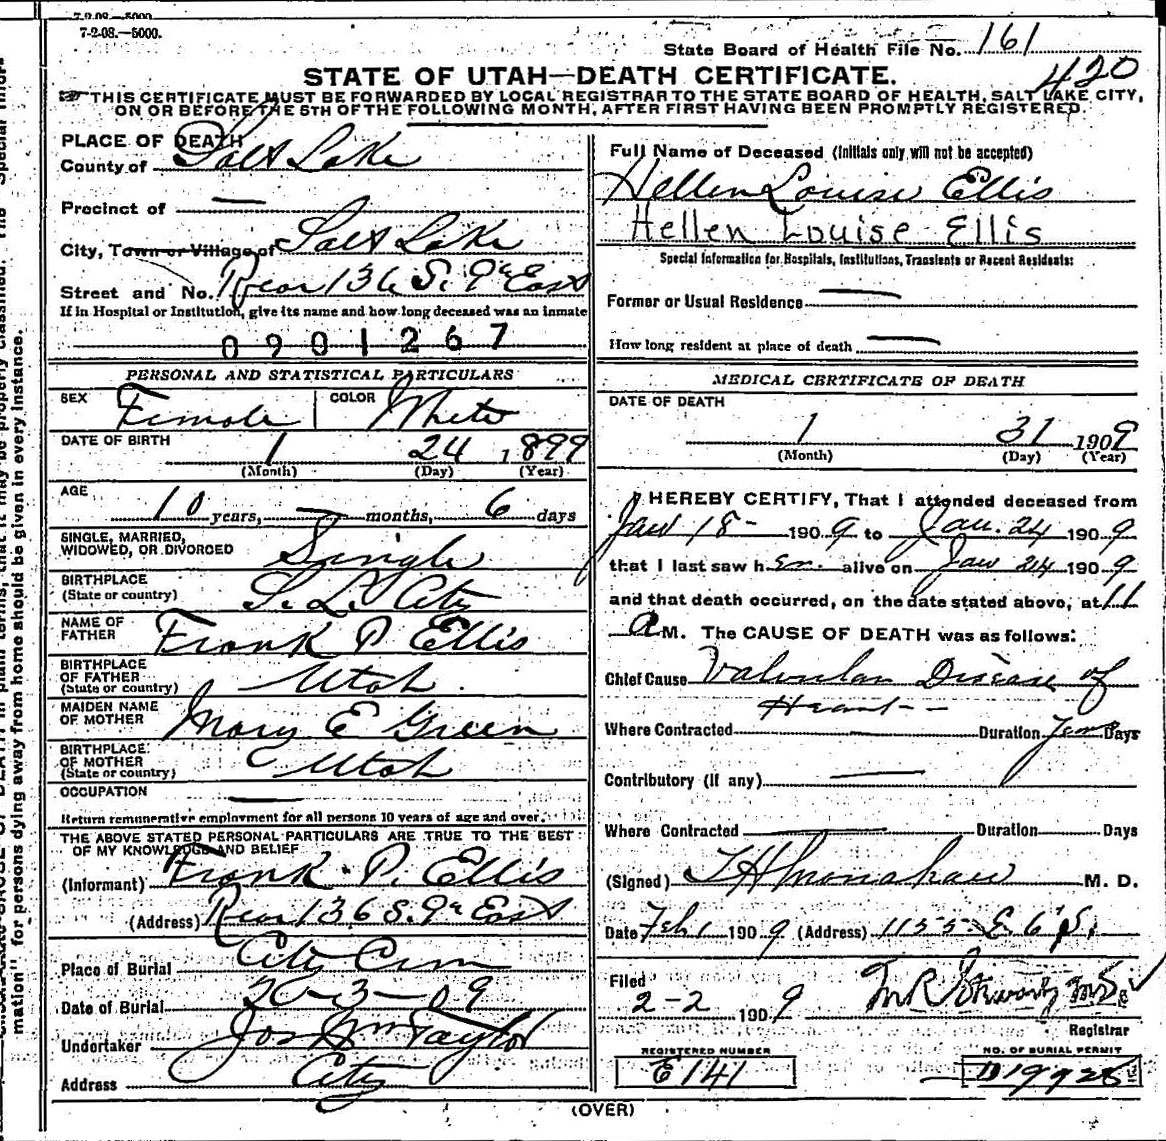 7-2-08.—5000.
State Board of Health File No. 161
420
STATE OF UTAH—DEATH CERTIFICATE.
THIS CERTIFICATE MUST BE FORWARDED BY LOCAL REGISTRAR TO THE STATE BOARD OF HEALTH, SALT LAKE CITY,
ON OR BEFORE THE 5TH OF THE FOLLOWING MONTH, AFTER FIRST HAVING BEEN PROMPTLY REGISTERED.
PLACE OF DEATH
County of Salt Lake
Precinct of —
City, Town or Village of Salt Lake
Street and No. Rear 136 S. 9th East
If in Hospital or Institution, give its name and how long deceased was an inmate
0901267
PERSONAL AND STATISTICAL PARTICULARS
SEX Female COLOR White
DATE OF BIRTH 1 24 1899
(Month) (Day) (Year)
AGE 10 years, — months, 6 days
SINGLE, MARRIED,
WIDOWED, OR DIVORCED Single
BIRTHPLACE
(State or country) S. L. City
NAME OF
FATHER Frank P. Ellis
BIRTHPLACE
OF FATHER
(State or country) Utah
MAIDEN NAME
OF MOTHER Mary E Green
BIRTHPLACE
OF MOTHER
(State or country) Utah
OCCUPATION —
Return remunerative employment for all persons 10 years of age and over.
THE ABOVE STATED PERSONAL PARTICULARS ARE TRUE TO THE BEST
OF MY KNOWLEDGE AND BELIEF
(Informant) Frank P. Ellis
(Address) Rear 136 S. 9th East
Place of Burial City Cem
Date of Burial 2-3-09
Undertaker Jos Wm Taylor
Address City
Full Name of Deceased (Initials only will not be accepted)
Hellen Louise Ellis
Hellen Louise Ellis
Special Information for Hospitals, Institutions, Transients or Recent Residents:
Former or Usual Residence —
How long resident at place of death —
MEDICAL CERTIFICATE OF DEATH
DATE OF DEATH
1 31 1909
(Month) (Day) (Year)
I HEREBY CERTIFY, That I attended deceased from
Jan 18 1909 to Jan. 24 1909
that I last saw her alive on Jan 24 1909
and that death occurred, on the date stated above, at 11
A M. The CAUSE OF DEATH was as follows:
Chief Cause Valvular Disease of
Heart
Where Contracted Duration Days
Contributory (if any) —
Where Contracted — Duration Days
(Signed) M. D.
Date Feb 1 1909 (Address) 1155 E. 6 S.
Filed
2-2 1909
Registrar
REGISTERED NUMBER
E141
NO. OF BURIAL PERMIT
(OVER)
mation" for persons dying away from home should be given in every instance.